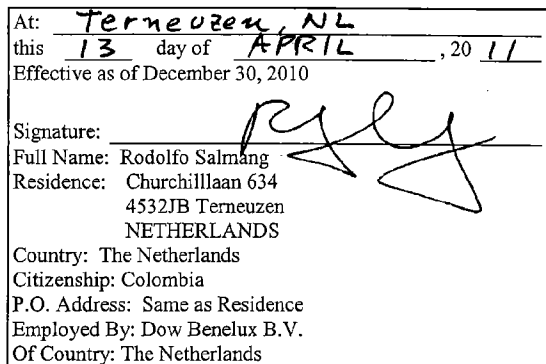 At: Terneuzen, NL
this 13 day of APRIL, 20 11
Effective as of December 30, 2010
Signature:
Full Name: Rodolfo Salmang
Residence: Churchilllaan 634
4532JB Terneuzen
NETHERLANDS
Country: The Netherlands
Citizenship: Colombia
P.O. Address: Same as Residence
Employed By: Dow Benelux B.V.
Of Country: The Netherlands